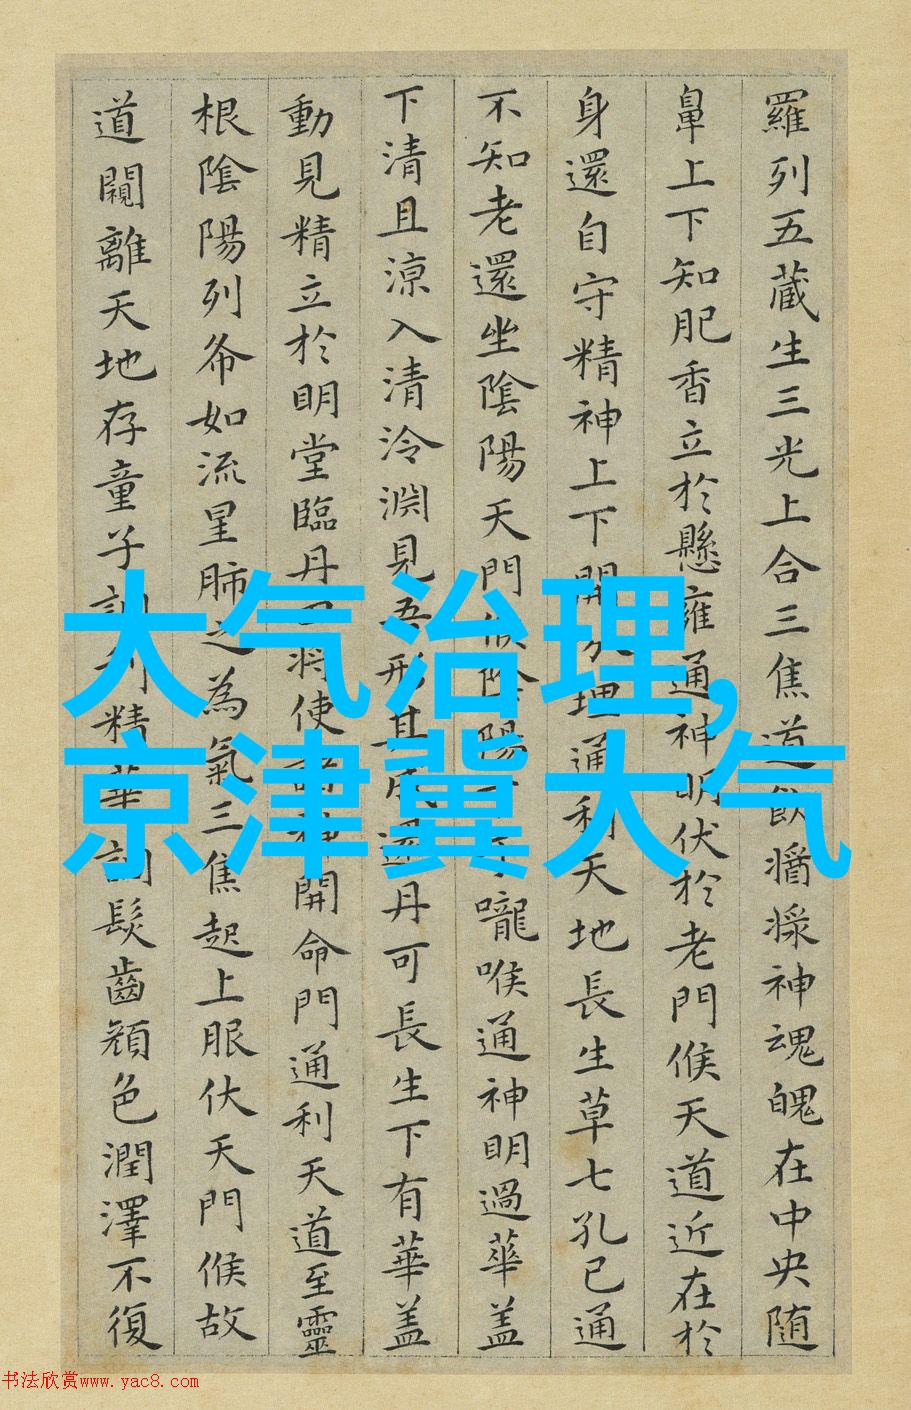 羅列五藏生三光上合三焦道飲醬漿神魂魄在中央随
鼻上下知肥香立於懸雍通神明伏於老門候天道近在於
身還自守精神上下開分理通利天地長生草七孔已通
不知老還坐陰陽天門候陰陽嚨喉通神明過華盖
下清且涼入清泠淵見吾形其成還丹可長生下有華盖
動見精立於明堂臨丹田将使諸神開命門通利天道至靈
根陰陽列布如流星肺之為氣三焦起上服伏天門候故
道闚離天地存童子調利精華調髮齒顔色潤澤不復
大气治理,
京津冀大气
书法欣赏www.yac8.com